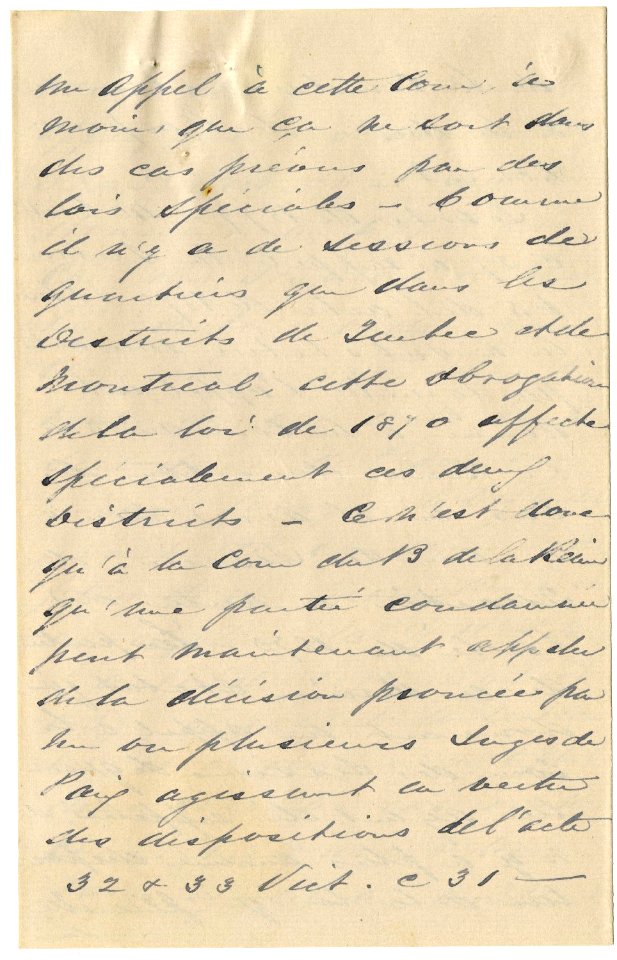 un appel à cette Cour, à
moins que ça ne soit dans
des cas prévus par des
lois spéciales - Comme
il n'y a de sessions de
quartiers que dans les
Districts de Quebec et de
Montreal, cette abrogation
de la loi de 1870 affecte
spécialement ces deux
Districts - Ce n'est donc
qu'à la Cour du B de la Reine
qu'une partie condamnée
peut maintenant appeler
de la décision prononcée par
un ou plusieurs Juges de
Paix agissant en vertu
des dispositions de l'acte
32 & 33 Vict. c 31 -